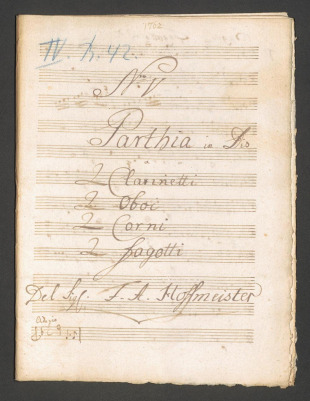 IV. h. 42.
No. V
Parthia in Dis
2 Clarinetti
2 Oboi
2 Corni
2 fagotti
Del Sigl. F. A. Hoffmeister